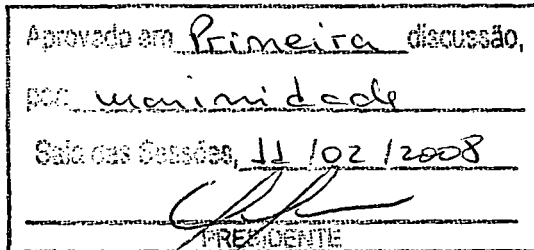 Aprovado em Primeira discussão,
por unanimidade
Sala das Sessões, 11/02/2008
PRESIDENTE